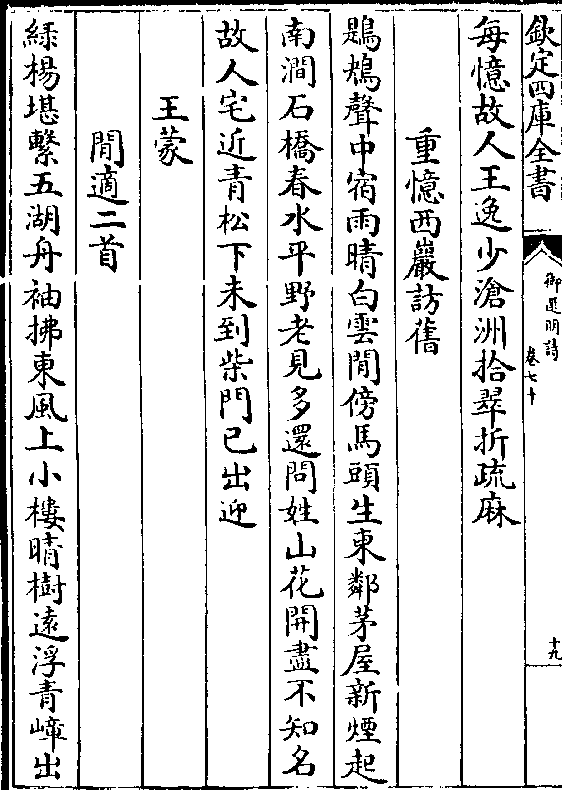 欽定四庫全書
御選明詩
卷七十
十九
每憶故人王逸少滄洲拾翠折疏麻
重憶西巖訪舊
鶗鴂聲中宿雨晴白雲閒傍馬頭生東鄰茅屋新煙起
南澗石橋春水平野老見多還問姓山花開盡不知名
故人宅近青松下未到柴門已出迎
王蒙
閒適二首
綠楊堪繫五湖舟袖拂東風上小樓晴樹遠浮青嶂出